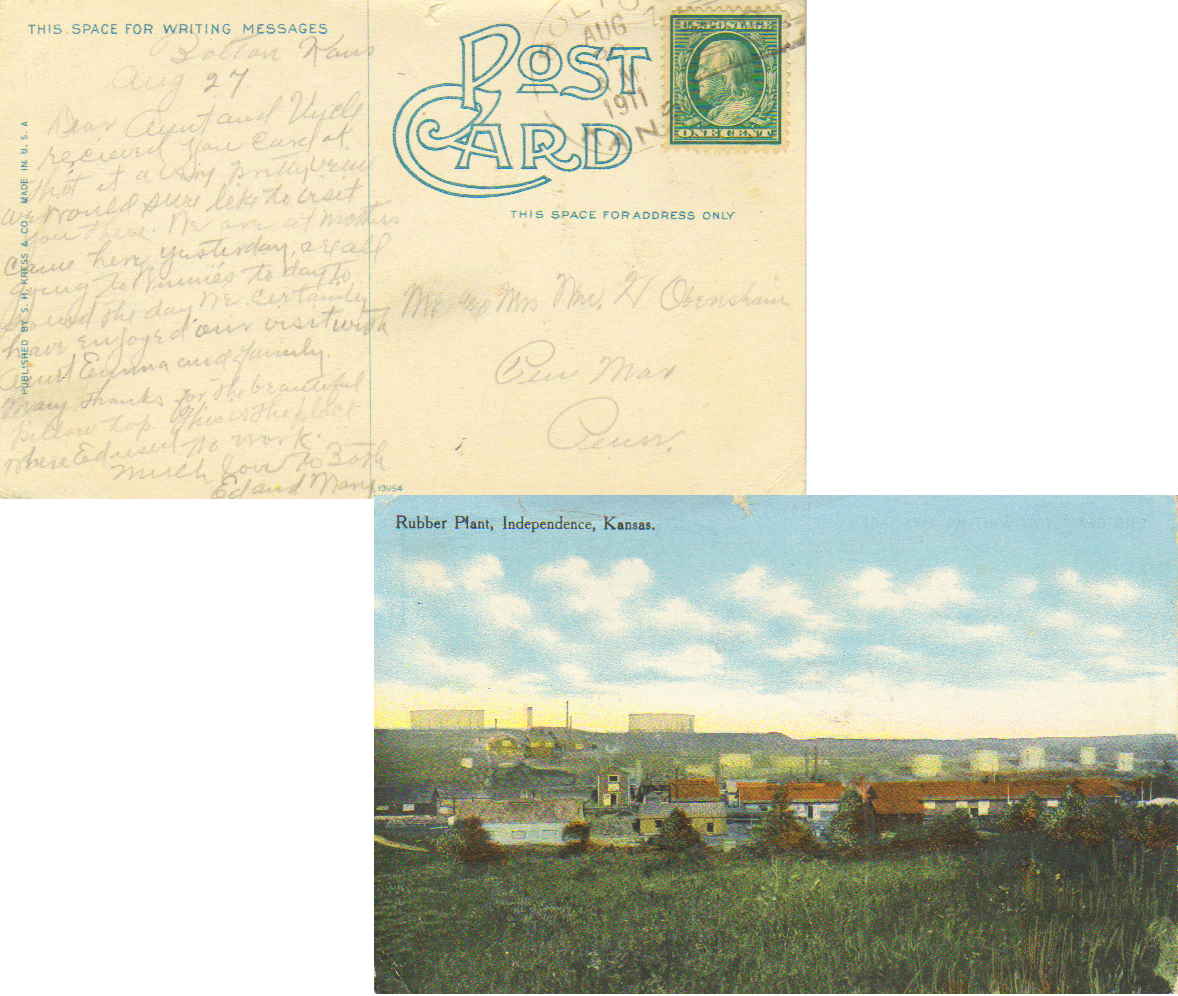 THIS SPACE FOR WRITING MESSAGES
Bolton Kans
Aug 27
Dear Aunt and Uncle
recieved you Card at
that it a very pretty view
we would sure like to visit
you there. We are at mothers
came here yesterday, are all
going to Winnies to day to
spend the day We certainly
have enjoyed our visit with
Aunt Emma and family.
Many thanks for the beautiful
pillow top. This is the place
where Ed used to work.
much love to Both
Ed and Mary
PUBLISHED BY S. H. KRESS & CO. MADE IN U. S. A
POST CARD
BOLTON
AUG
AM
1911
KAN
U.S. POSTAGE
ONE CENT
THIS SPACE FOR ADDRESS ONLY
Mr & Mrs Wm. H Obenshain
Penn Mar
Penn.
Rubber Plant, Independence, Kansas.